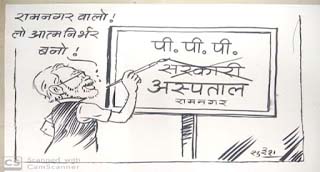 रामनगर वालो!
लो आत्मनिर्भर
बनो!
पी. पी. पी.
सरकारी
अस्पताल
रामनगर
CS Scanned with
CamScanner